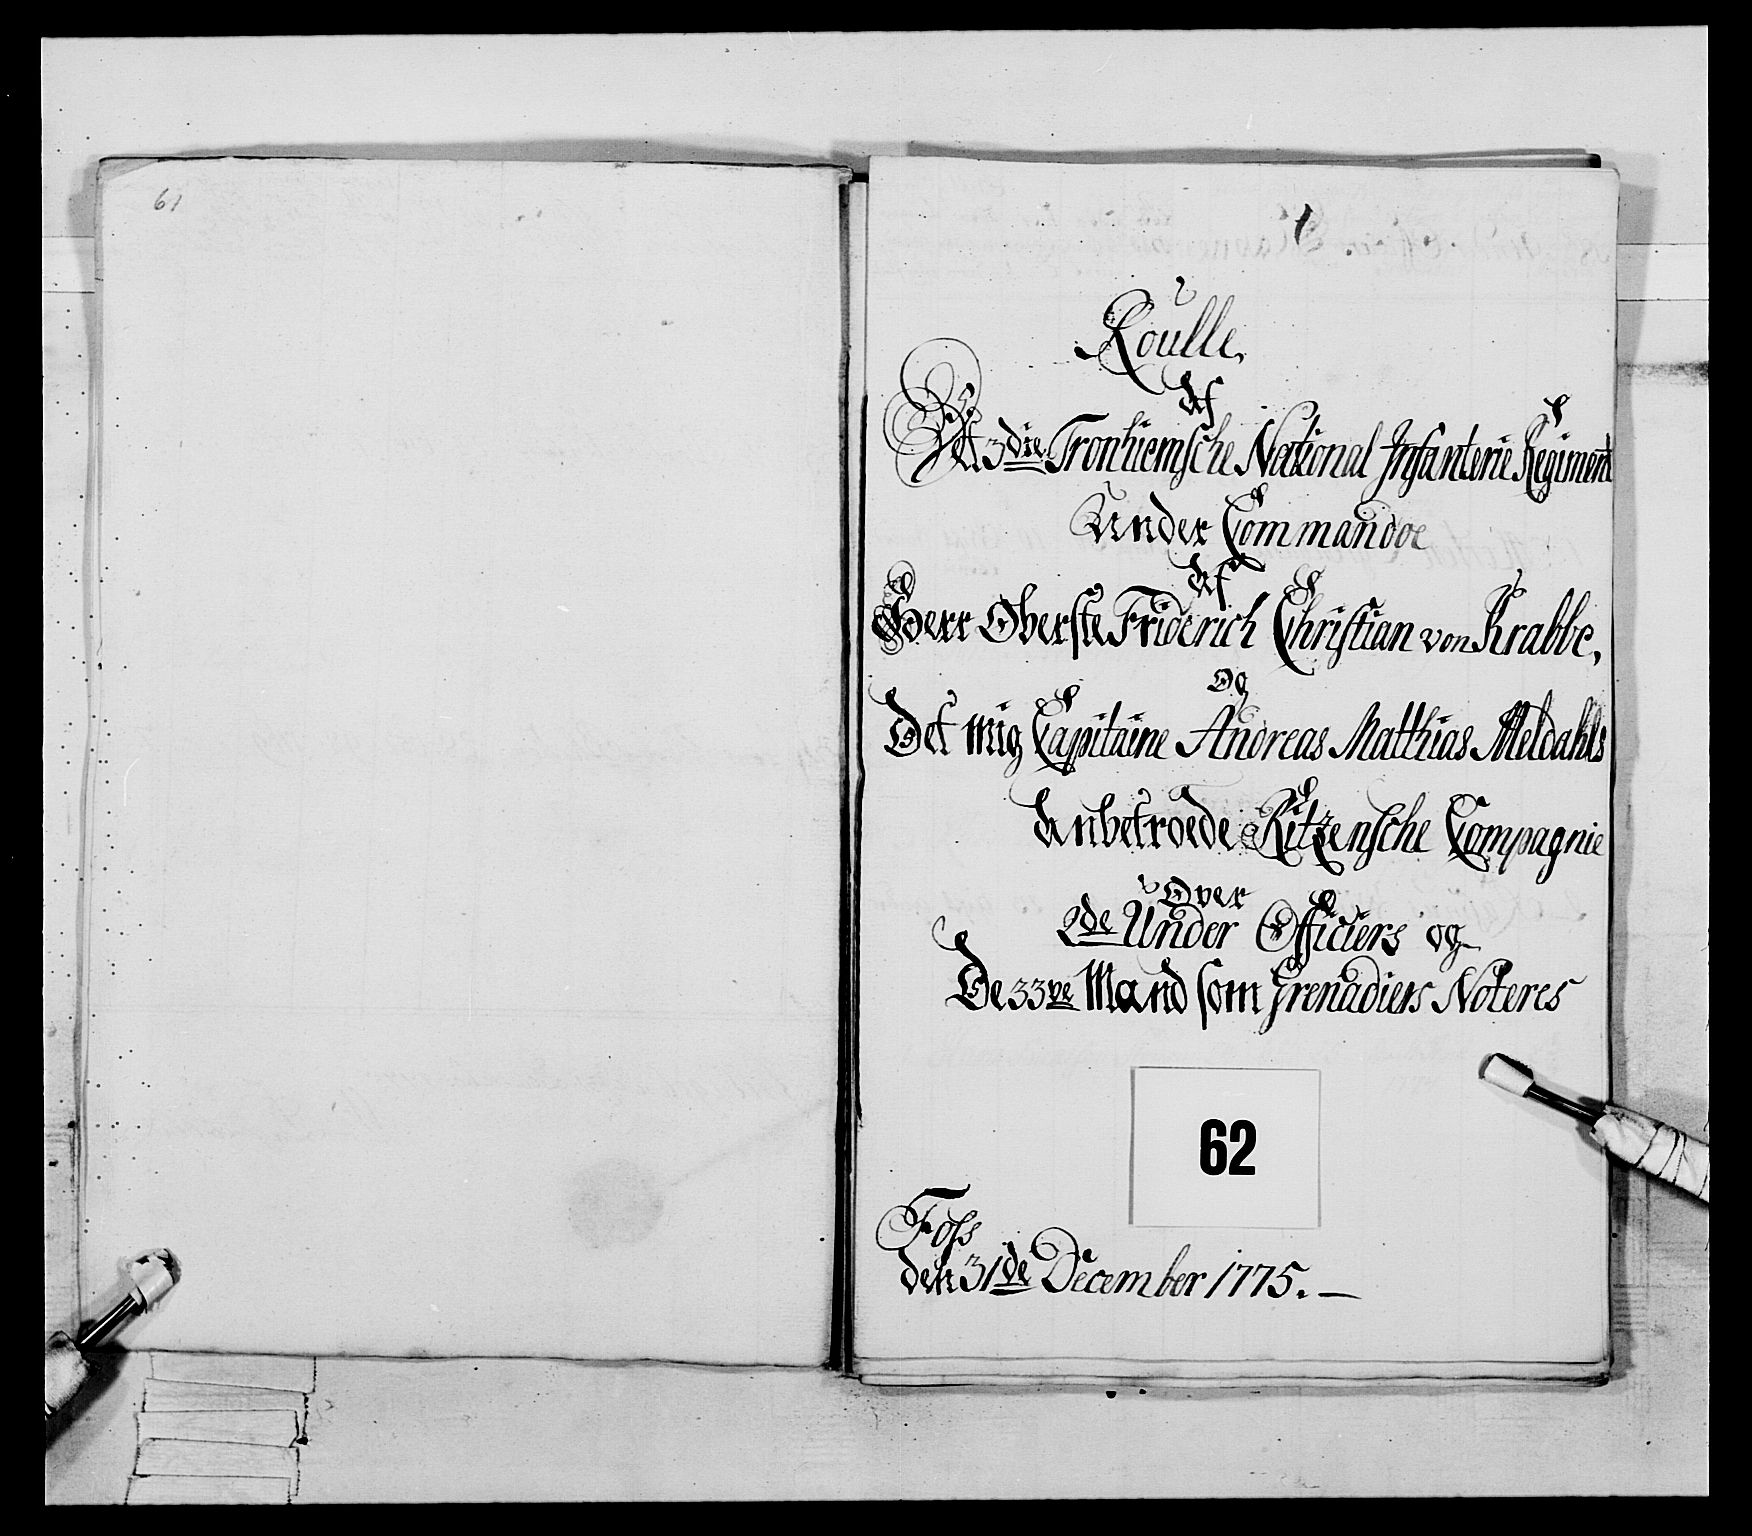 61
Roulle,
Af
Det 3die Tronhiemsche National Infanterie Regiment
Under Commandoe
Af
Herr Oberste Friderich Christian von Krabbe,
Og
Det mig Capitaine Andreas Matthias Meldahls
Anbetroede Ritzensche Compagnie
Over
2de Under Officiers og
De 33ve Mand som Grenadiers Noteres
62
Foss
den 31de December 1775.